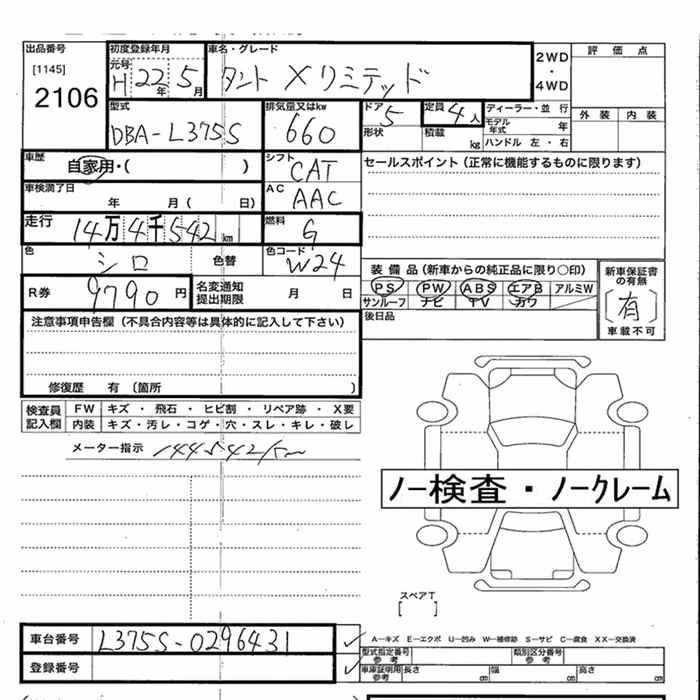 出品番号 初度登録年月 車名・グレード 評価点
[1145] 元号 2WD
2106 H 22年 5月 タント Xリミテッド ・
4WD 外装 内装
型式 排気量又はkw ドア 定員 ディーラー・並行
DBA-L375S 660 5 4人 モデル年式 年
形状 積載 kg ハンドル 左・右
車歴 シフト セールスポイント(正常に機能するものに限ります)
自家用・( ) CAT
車検満了日 AC
年 月( 日) AAC
走行 燃料
14万4千542km G
色 色替 色コード
シロ W24 装備品(新車からの純正品に限り○印) 新車保証書の有無
R券 9790円 名変通知提出期限 月 日 PS PW ABS エアB アルミW [有]
サンルーフ ナビ TV カワ 車載不可
注意事項申告欄(不具合内容等は具体的に記入して下さい) 後日品
修復歴 有(箇所 )
検査員 FW キズ・飛石・ヒビ割・リペア跡・X要
記入欄 内装 キズ・汚レ・コゲ・穴・スレ・キレ・破レ
メーター指示 144542km
ノー検査・ノークレーム
スペアT
[ ]
車台番号 L375S-0296431 A—キズ E—エクボ U—凹み W—補修跡 S—サビ C—腐食 XX—交換済
型式指定番号参考 類別区分番号参考
登録番号 車庫証明用参考 長さ cm 幅 cm 高さ cm